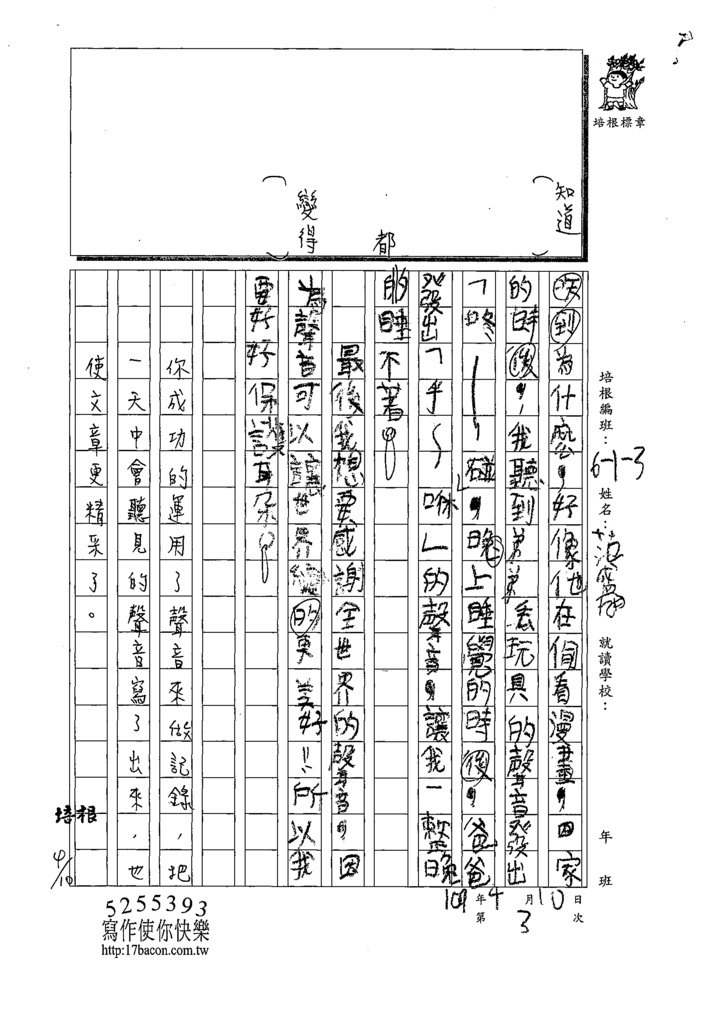 培根標章
知道
都
變得
培根編班：6-1-3 姓名： 就讀學校： 年 班
到為什麼，好像他在偷看漫畫，回家
的時後，我聽到弟弟丟玩具的聲音發出
「咚——碰」，晚上睡覺的時後，爸爸
發出「乎～咻」的聲音，讓我一整晚
的睡不著。
最後我想要感謝全世界的聲音，因
為聲音可以讓世界的更美好！！所以我
要好好保護耳朵。
你成功的運用了聲音來做記錄，把
一天中會聽見的聲音寫了出來，也
使文章更精采了。
培根
4/10
109年4月10日
第3次
5255393
寫作使你快樂
http:17bacon.com.tw